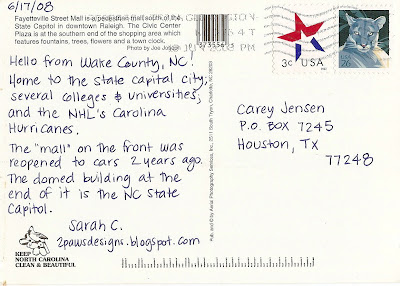 6/17/08
Fayetteville Street Mall is a pedestrian mall south of the
State Capitol in downtown Raleigh. The Civic Center
Plaza is at the southern end of the shopping area which
features fountains, trees, flowers and a town clock.
Photo by Joe
3¢ USA
26
Hello from Wake County, NC!
Home to the state capital city,
several colleges & universities,
and the NHL's Carolina
Hurricanes.
The "mall" on the front was
reopened to cars 2 years ago.
The domed building at the
end of it is the NC State
Capitol.
Sarah C.
2pawsdesigns.blogspot.com
Carey Jensen
P.O. BOX 7245
Houston, TX
77248
KEEP
NORTH CAROLINA
CLEAN & BEAUTIFUL